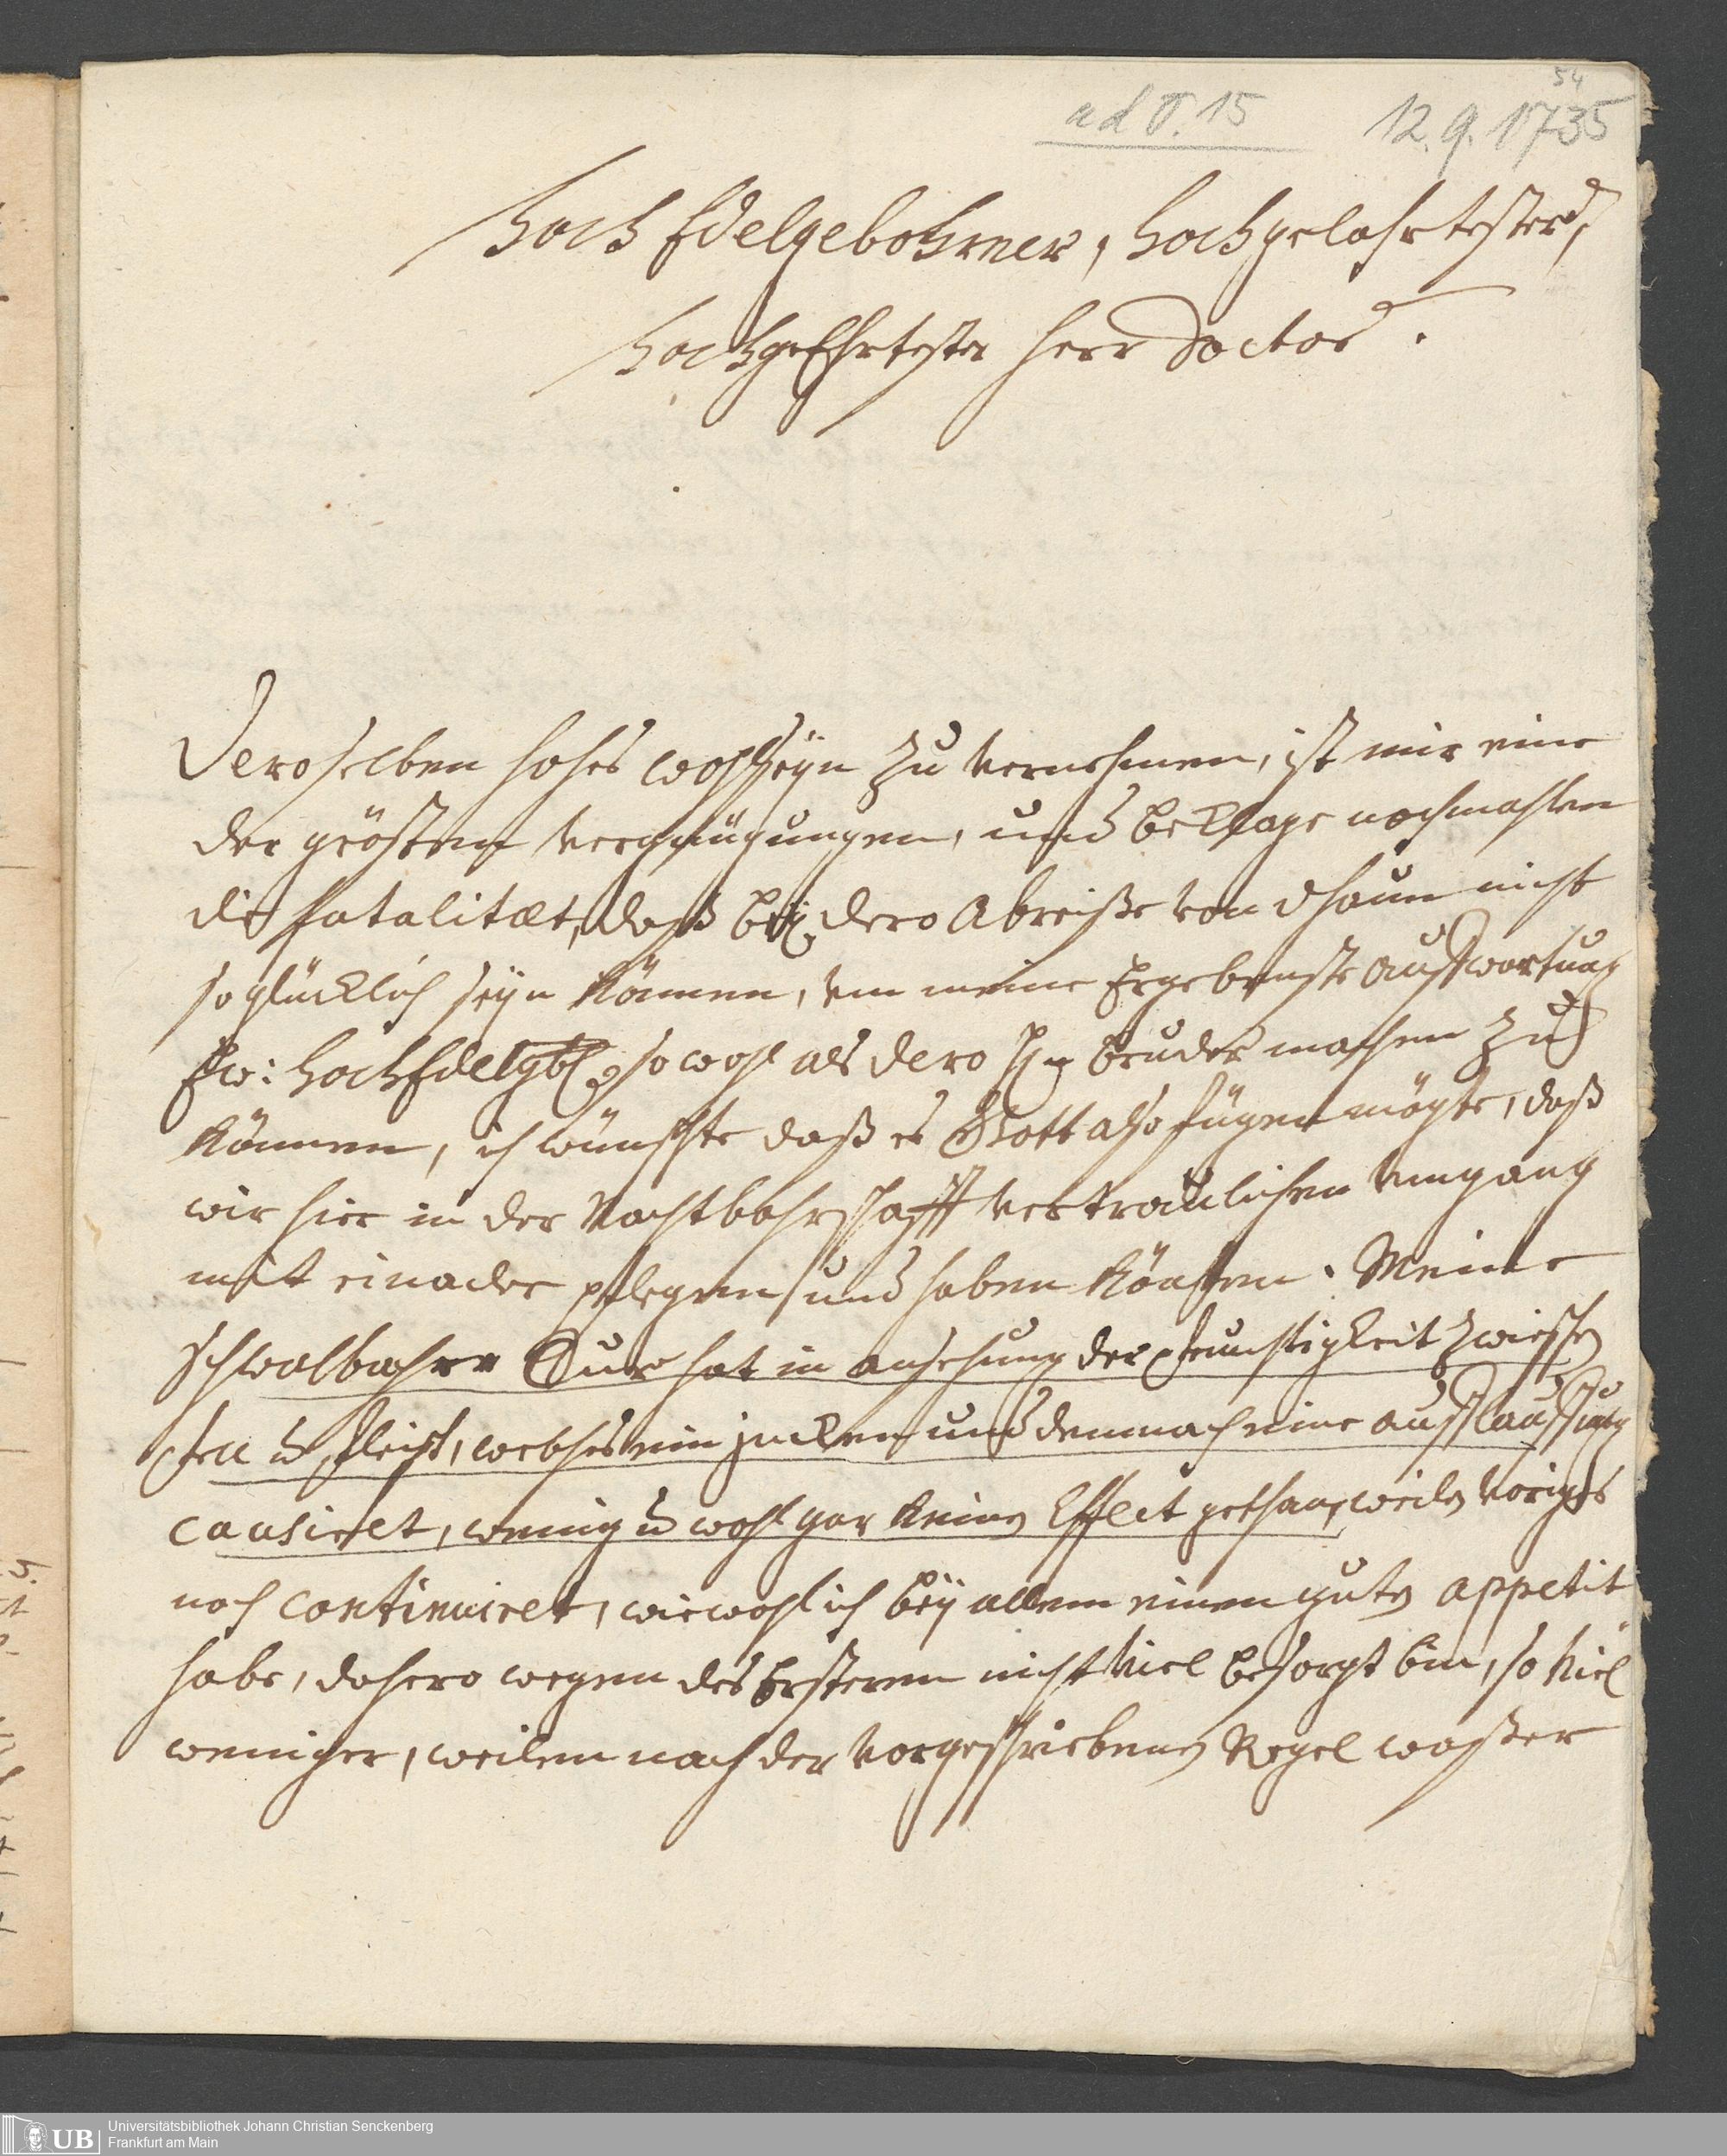 54
ad T. 15 12. 9. 1735
HochEdelgebohrner, Hochgelahrtester,
HochgeEhrtester Herr Doctor.
Deroselben hohes wohlseyn zu vernehmen, ist mir eine
der grösten vergnügungen, und beklage nochmahlen
die fatalitæt, daß bey dero Abreiße von Dhaun nicht
so glücklich seyn können, um meine Ergebenste auffwartung
Ew: HochEdelgb. so wohl als dero Hn bruder machen zu
können, ich wünschte daß es Gott also fügen mögte, daß
wir hier in der Nachtbahrschafft vertraulichen umgang
mit einader pflegen und haben könten. Meine
Schwalbacher Cur hat in ansehung der feuchtigkeit zwischen
fell u fleisch, welches ein jucken und demnach eine auffschlag
causiret, wenig u wohl gar keinen Effect gethan, weilen voriges
noch continuiret, wiewohl ich bey allem einen guten appetit
habe, dahero wegen des Ersteren nicht viel besorgt bin, so viel
weniger, weilen nach der vorgeschriebenen Regel waßer
Universitätsbibliothek Johann Christian Senckenberg
Frankfurt am Main
UB